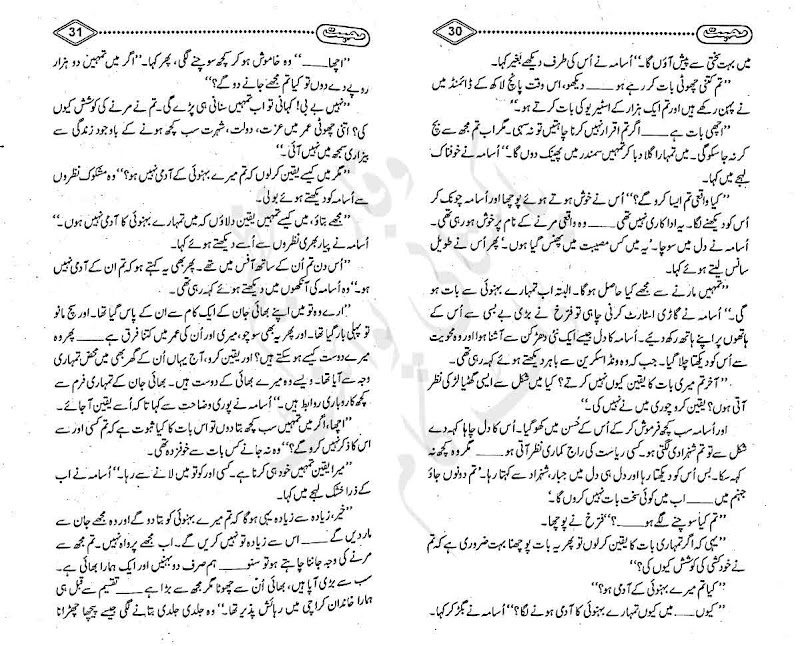 محبت 30
میں بہت سختی سے پیش آؤں گا۔‘‘ اُسامہ نے اُس کی طرف دیکھے بغیر کہا۔
’’تم کتنی جھوٹی بات کر رہے ہو ____ دیکھو، اس وقت پانچ لاکھ کے ڈائمنڈ میں
نے پہن رکھے ہیں اور تم ایک ہزار کے اسٹیریو کی بات کرتے ہو۔‘‘
’’اچھی بات ہے ____ اگر تم اقرار نہیں کرنا چاہتیں تو نہ سہی۔ مگر اب تم مجھ سے بچ
کر نہ جا سکو گی۔ میں تمہارا گلا دبا کر تمہیں سمندر میں پھینک دوں گا۔‘‘ اُسامہ نے خوفناک
لہجے میں کہا۔
’’کیا واقعی تم ایسا کرو گے؟‘‘ اُس نے خوش ہوتے ہوئے پوچھا اور اُسامہ چونک کر
اُس کو دیکھنے لگا۔ یہ اداکاری نہیں تھی ____ وہ واقعی مرنے کے نام پر خوش ہو رہی تھی۔
اُسامہ نے دل میں سوچا۔ ’یہ میں کس مصیبت میں پھنس گیا ہوں۔‘ پھر اُس نے طویل
سانس لیتے ہوئے کہا۔
’’تمہیں مارنے سے مجھے کیا حاصل ہو گا۔ البتہ اب تمہارے بہنوئی سے بات ہو
گی۔‘‘ اُسامہ نے گاڑی اسٹارٹ کرنی چاہی تو فترخ نے بڑی بے بسی سے اُس کے
ہاتھوں پر اپنے ہاتھ رکھ دیئے۔ اُسامہ کا دل جیسے ایک نئی دھڑکن سے آشنا ہوا اور وہ محویت
سے اُس کو دیکھتا چلا گیا۔ جب کہ وہ ونڈ اسکرین سے باہر دیکھتے ہوئے کہہ رہی تھی۔
’’آخر تم میری بات کا یقین کیوں نہیں کرتے؟ کیا میں شکل سے ایسی گھٹیا لڑکی نظر
آتی ہوں؟ یقین کرو چوری میں نے نہیں کی۔‘‘
اور اُسامہ سب کچھ فرموش کر کے اُس کے حُسن میں کھو گیا۔ اُس کا دل چاہا کہہ دے
شکل سے تو تم شہزادی لگتی ہو۔ کسی ریاست کی راج کماری نظر آتی ہو ____ مگر وہ کچھ نہ
کہہ سکا۔ بس اُس کو دیکھتا رہا اور دل ہی دل میں جبار، شہزاد سے کہتا رہا۔ ’تم دونوں جاؤ
جہنم میں ____ اب میں کوئی سخت بات نہیں کروں گا۔‘
’’تم کیا سوچنے لگے ہو ____؟‘‘ فترخ نے پوچھا۔
’’یہی کہ اگر تمہاری بات کا یقین کر لوں تو پھر یہ بات پوچھنا بہت ضروری ہے کہ تم
نے خودکشی کی کوشش کیوں کی؟‘‘
’’کیا تم میرے بہنوئی کے آدمی ہو؟‘‘
’’کیوں ____ میں کیوں تمہارے بہنوئی کا آدمی ہونے لگا؟‘‘ اُسامہ نے بگڑ کر کہا۔
محبت 31
’’اچھا ____‘‘ وہ خاموش ہو کر کچھ سوچنے لگی، پھر کہا۔ ’’اگر میں تمہیں دو ہزار
روپے دے دوں تو کیا تم مجھے جانے دو گے؟‘‘
’’نہیں بے بی! کہانی تو اب تمہیں سنانی ہی پڑے گی۔ تم نے مرنے کی کوشش کیوں
کی؟ اتنی چھوٹی عمر میں عزت، دولت، شہرت سب کچھ ہونے کے باوجود زندگی سے
بیزاری سمجھ میں نہیں آئی۔‘‘
’’مگر میں کیسے یقین کر لوں کہ تم میرے بہنوئی کے آدمی نہیں ہو؟‘‘ وہ مشکوک نظروں
سے اُسامہ کو دیکھتے ہوئے بولی۔
’’مجھے بتاؤ، میں کیسے تمہیں یقین دلاؤں کہ میں تمہارے بہنوئی کا آدمی نہیں ہوں۔‘‘
اُسامہ نے پیار بھری نظروں سے اُسے دیکھتے ہوئے کہا۔
’’اُس دن تم اُن کے ساتھ آفس میں تھے۔ پھر بھی یہ کہتے ہو کہ تم ان کے آدمی نہیں
ہو۔‘‘ وہ اُسامہ کی آنکھوں میں دیکھتے ہوئے کہہ رہی تھی۔
’’ارے وہ تو میں اپنے بھائی جان کے ایک کام سے ان کے پاس گیا تھا۔ اور سچ مانو
تو پہلی بار گیا تھا۔ اور پھر یہ بھی سوچو، میری اور اُن کی عمر میں کتنا فرق ہے ____ پھر وہ
میرے دوست کیسے ہو سکتے ہیں؟ اور یقین کرو، آج یہاں اُن کے گھر بھی میں محض تمہاری
وجہ سے آیا تھا۔ ویسے وہ میرے بھائی کے دوست ہیں۔ بھائی جان کے تمہاری فرم سے
کچھ کاروباری روابط ہیں۔‘‘ اُسامہ نے پوری وضاحت سے کہا تا کہ اُسے یقین آ جائے۔
’’اچھا، اگر میں تمہیں سب کچھ بتا دوں تو اس بات کا کیا ثبوت ہے کہ تم کسی اور سے
اس کا ذکر نہیں کرو گے؟‘‘ وہ نہ جانے کس بات سے خوفزدہ تھی۔
’’میرا یقین تمہیں خود ہی کرنا ہے۔ کسی اور کو تو میں لانے سے رہا۔‘‘ اُسامہ نے اب
کے ذرا خشک لہجے میں کہا۔
’’خیر، زیادہ سے زیادہ یہی ہو گا کہ تم میرے بہنوئی کو بتا دو گے اور وہ مجھے جان سے
مار دیں گے ____ اس سے زیادہ تو نہیں کریں گے۔ اب مجھے پرواہ نہیں۔ تم مجھ سے
مرنے کی وجہ جاننا چاہتے ہو تو سنو ____ ہم صرف دو بہنیں اور ایک ہمارا بھائی ہے۔
سب سے بڑی آپا ہیں، بھائی اُن سے چھوٹا مگر مجھ سے بڑا ہے ____ تقسیم سے قبل ہی
ہمارا خاندان کراچی میں رہائش پذیر تھا۔‘‘ وہ جلدی جلدی بتانے لگی جیسے پیچھا چھڑانا